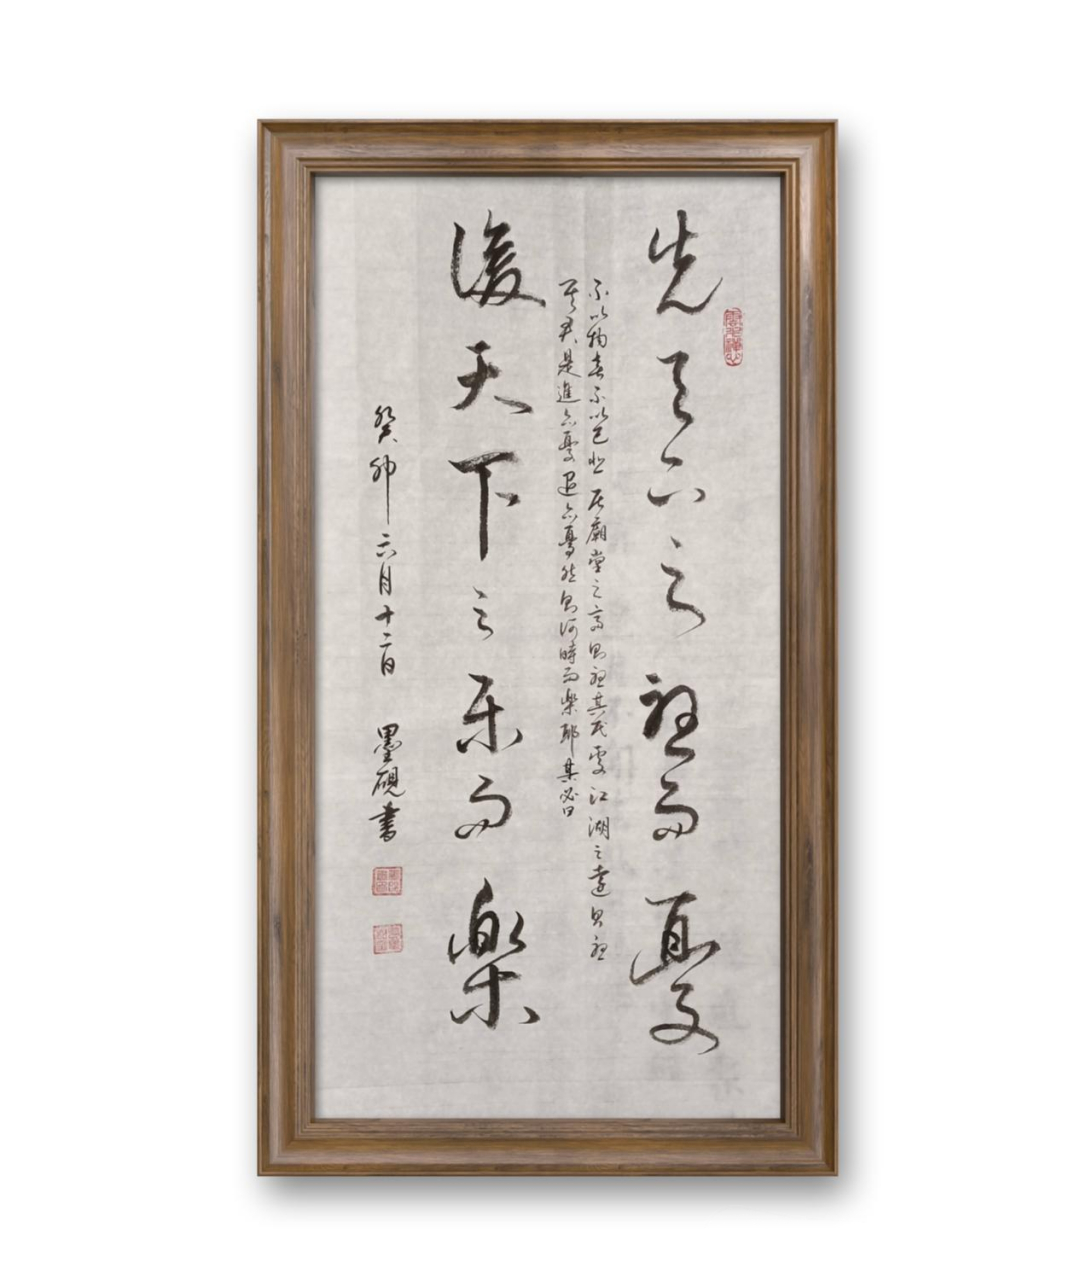 先天下之憂而憂
不以物喜不以己悲居廟堂之高則憂其民處江湖之遠則憂
其君是進亦憂退亦憂然則何時而樂耶其必曰
後天下之樂而樂
癸卯六月十二日 墨硯書